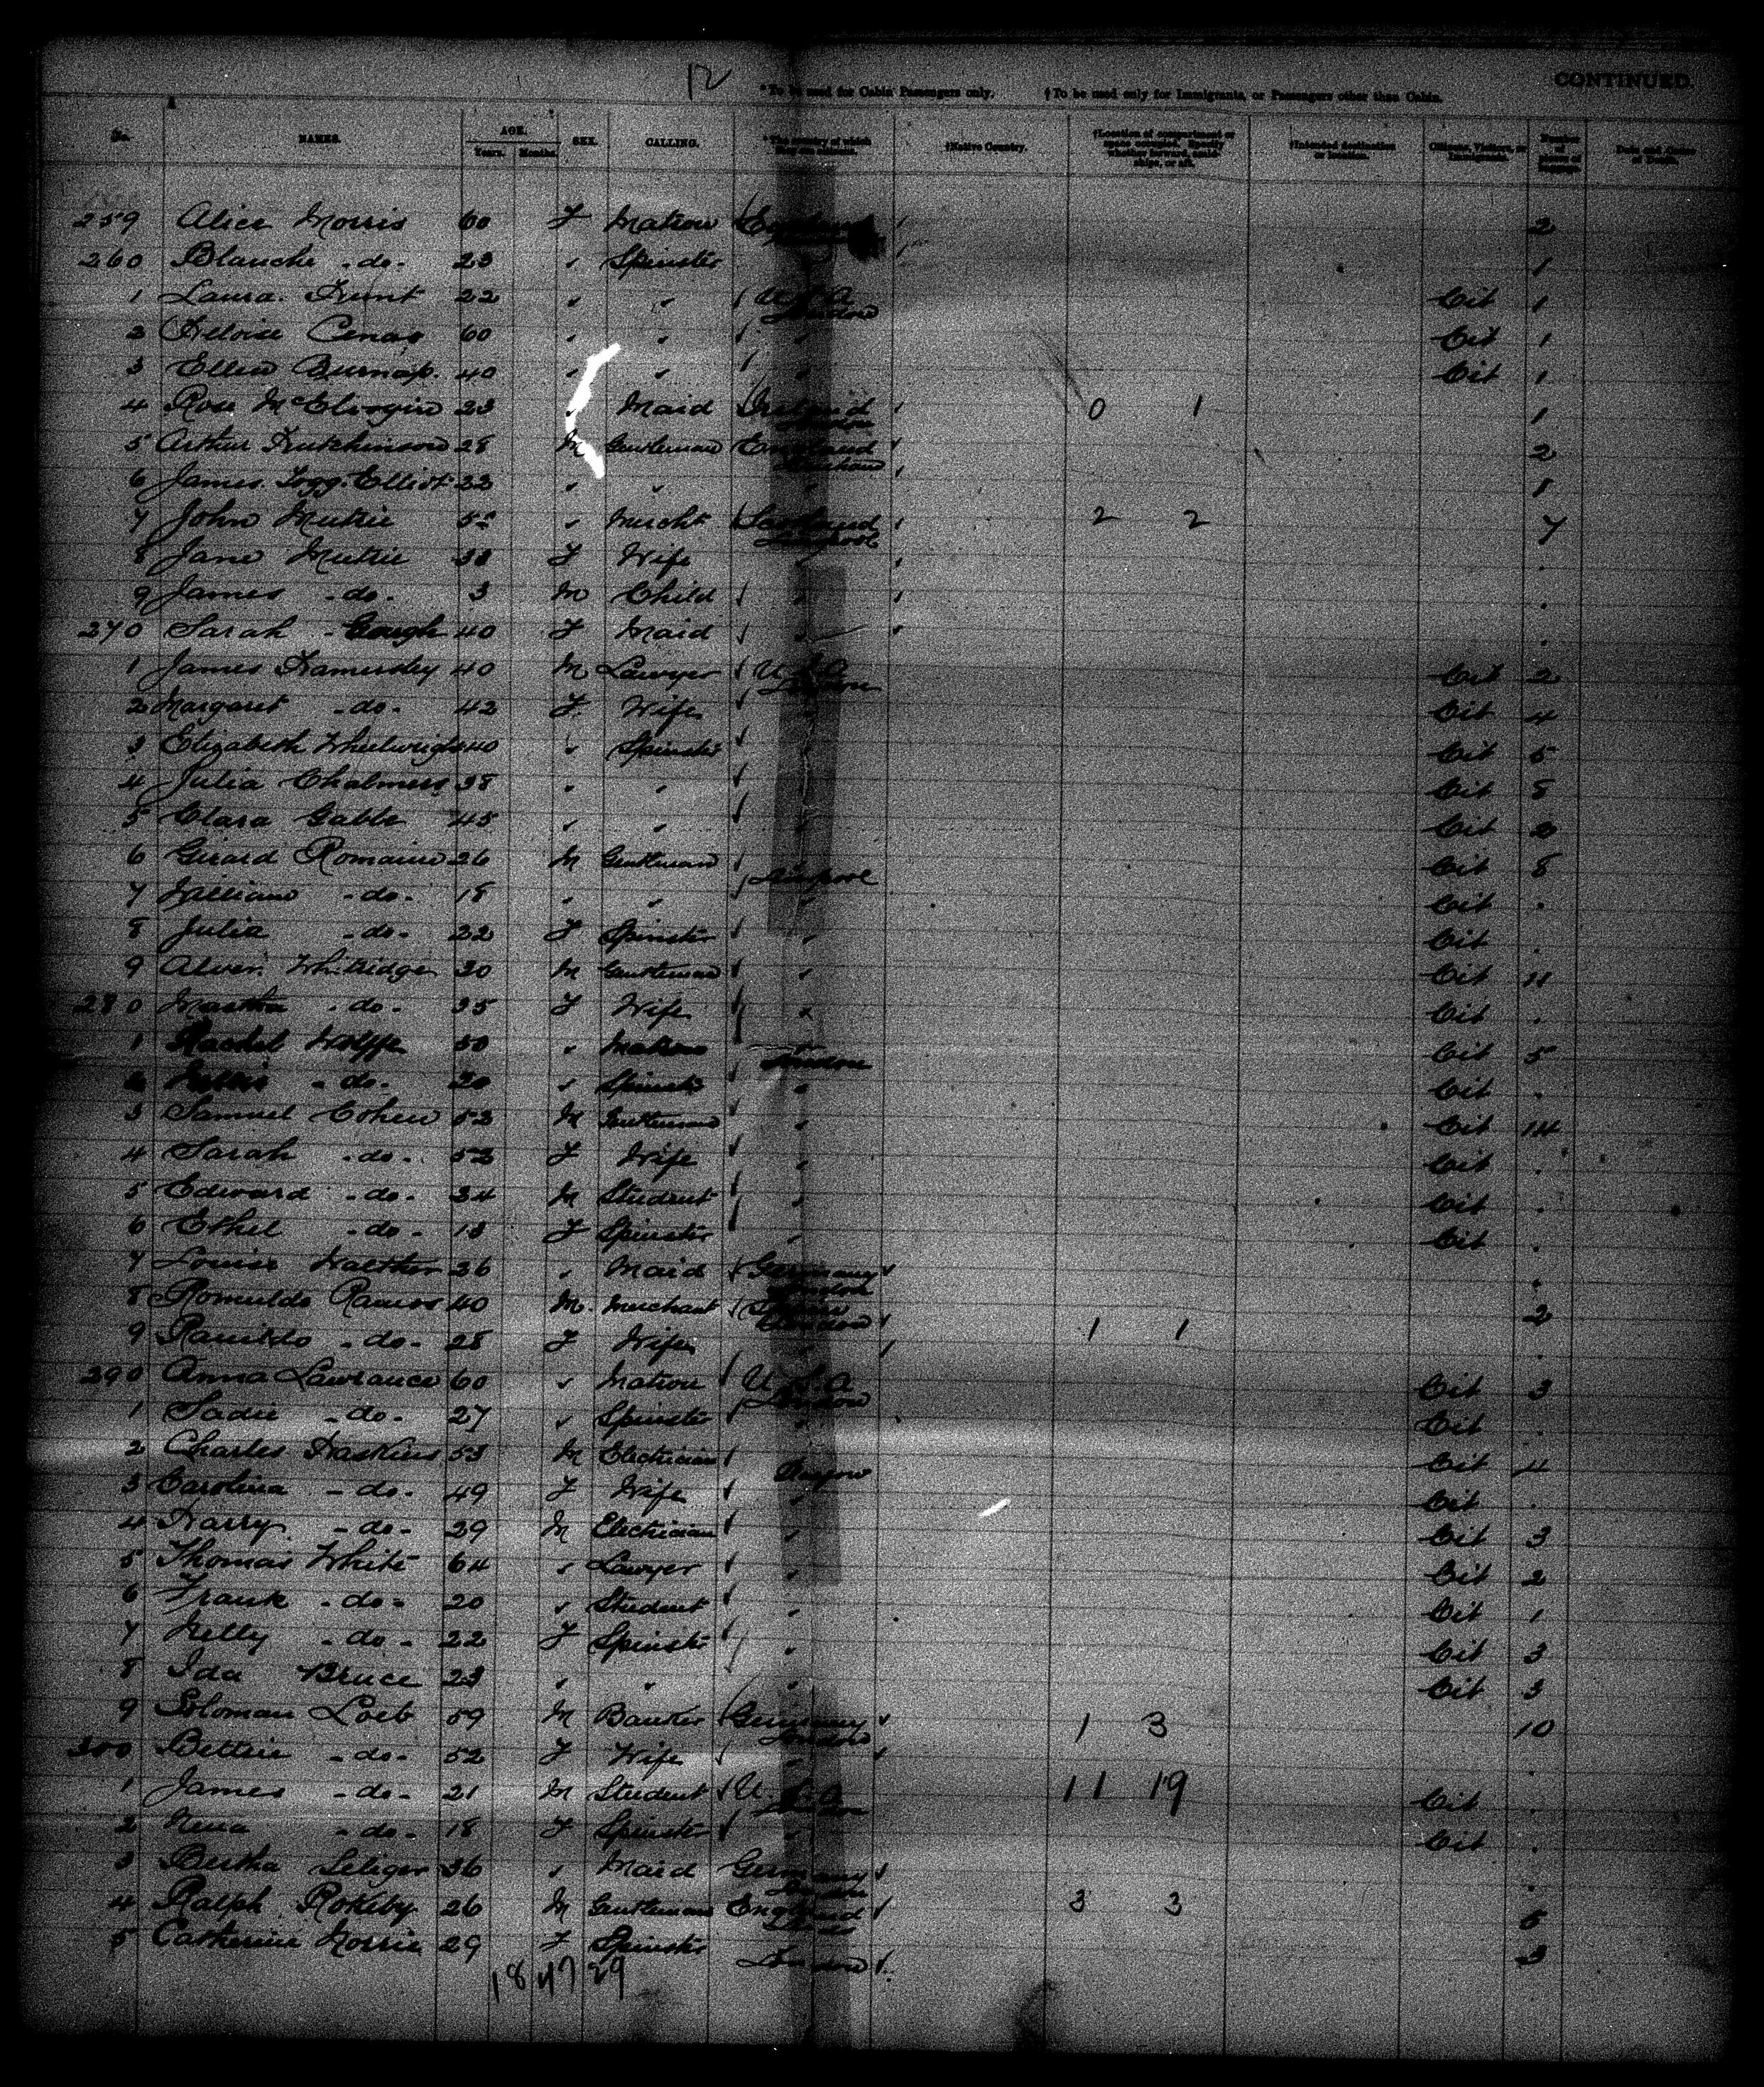 12
CONTINUED.
*To be used for Cabin Passengers only. †To be used only for Immigrants, or Passengers other than Cabin.
No. NAMES. AGE. Years. Months. SEX. CALLING. *The country of which they are citizens. †Native Country. †Location of compartment or space occupied. Specify whether forward, amidships, or aft. †Intended destination or location. Citizens, Visitors, or Immigrants. Number of pieces of baggage. Date and Cause of Death.
259 Alice Morris 60 F Matron 2
260 Blanche -do- 23 " Spinster 1
1 Laura 22 " " U.S.A London Cit 1
2 60 " " " Cit 1
3 Ellen Burnap 40 " " " Cit 1
4 Rose 23 " Maid Ireland London 0 1 1
5 Arthur Hutchinson 28 M Gentleman England 2
6 James Elliot 22 " " " 1
7 John Mutrie Mercht Scotland Liverpool 2 2 7
8 Jane Mutrie F Wife "
9 James -do- 3 M Child "
270 Sarah Gough 40 F Maid "
1 James Hamersley 40 M Lawyer U.S.A London Cit 2
2 Margaret -do- 42 F Wife " Cit 4
3 Elizabeth Wheelwright 40 " Spinster Cit 5
4 Julia Chalmers 38 " " Cit 8
5 Clara Gable 45 " " " Cit 2
6 Girard Romaine 26 M Gentleman Liverpool Cit 8
7 William -do- 18 " " " Cit
8 Julia -do- 22 F Spinster " Cit
9 Whitridge 30 M Gentleman " Cit 11
280 Martha -do- 35 F Wife " Cit
1 Rachel Wolffe 50 " Matron London Cit 5
-do- 20 " Spinster " Cit
3 Samuel Cohen 52 M Gentleman " Cit 14
4 Sarah -do- 52 F Wife " Cit
5 Edward -do- 24 M Student " Cit
6 Ethel -do- F Spinster " Cit
7 Louise Walther 36 " Maid Germany London
8 Romuldo Ramos 40 M. Merchant London 2
9 -do- 28 F Wife " 1 1
290 Anna Lawrance 60 " Matron U.S.A London Cit 3
1 Sadie -do- 27 " Spinster " Cit
2 Charles Haskins 53 M Electrician Glasgow Cit 4
3 Carolina -do- 49 F Wife " Cit
4 Harry -do- 29 M Electrician " Cit 3
5 Thomas White 64 " Lawyer " Cit 2
6 Frank -do- 20 " Student " Cit 1
7 -do- 22 F Spinster " Cit 3
8 Ida Bruce 23 " " " Cit 3
9 Soloman Loeb 59 M Banker Germany London 1 3 10
300 Bettie -do- 52 F Wife "
1 James -do- 21 M Student U.S.A London 11 19 Cit
2 -do- 18 F Spinster " Cit
3 Bertha 36 " Maid Germany London
4 Ralph Rokeby 26 M Gentleman England 3 3 5
5 Catherine 29 F Spinster London 3
18 47 29